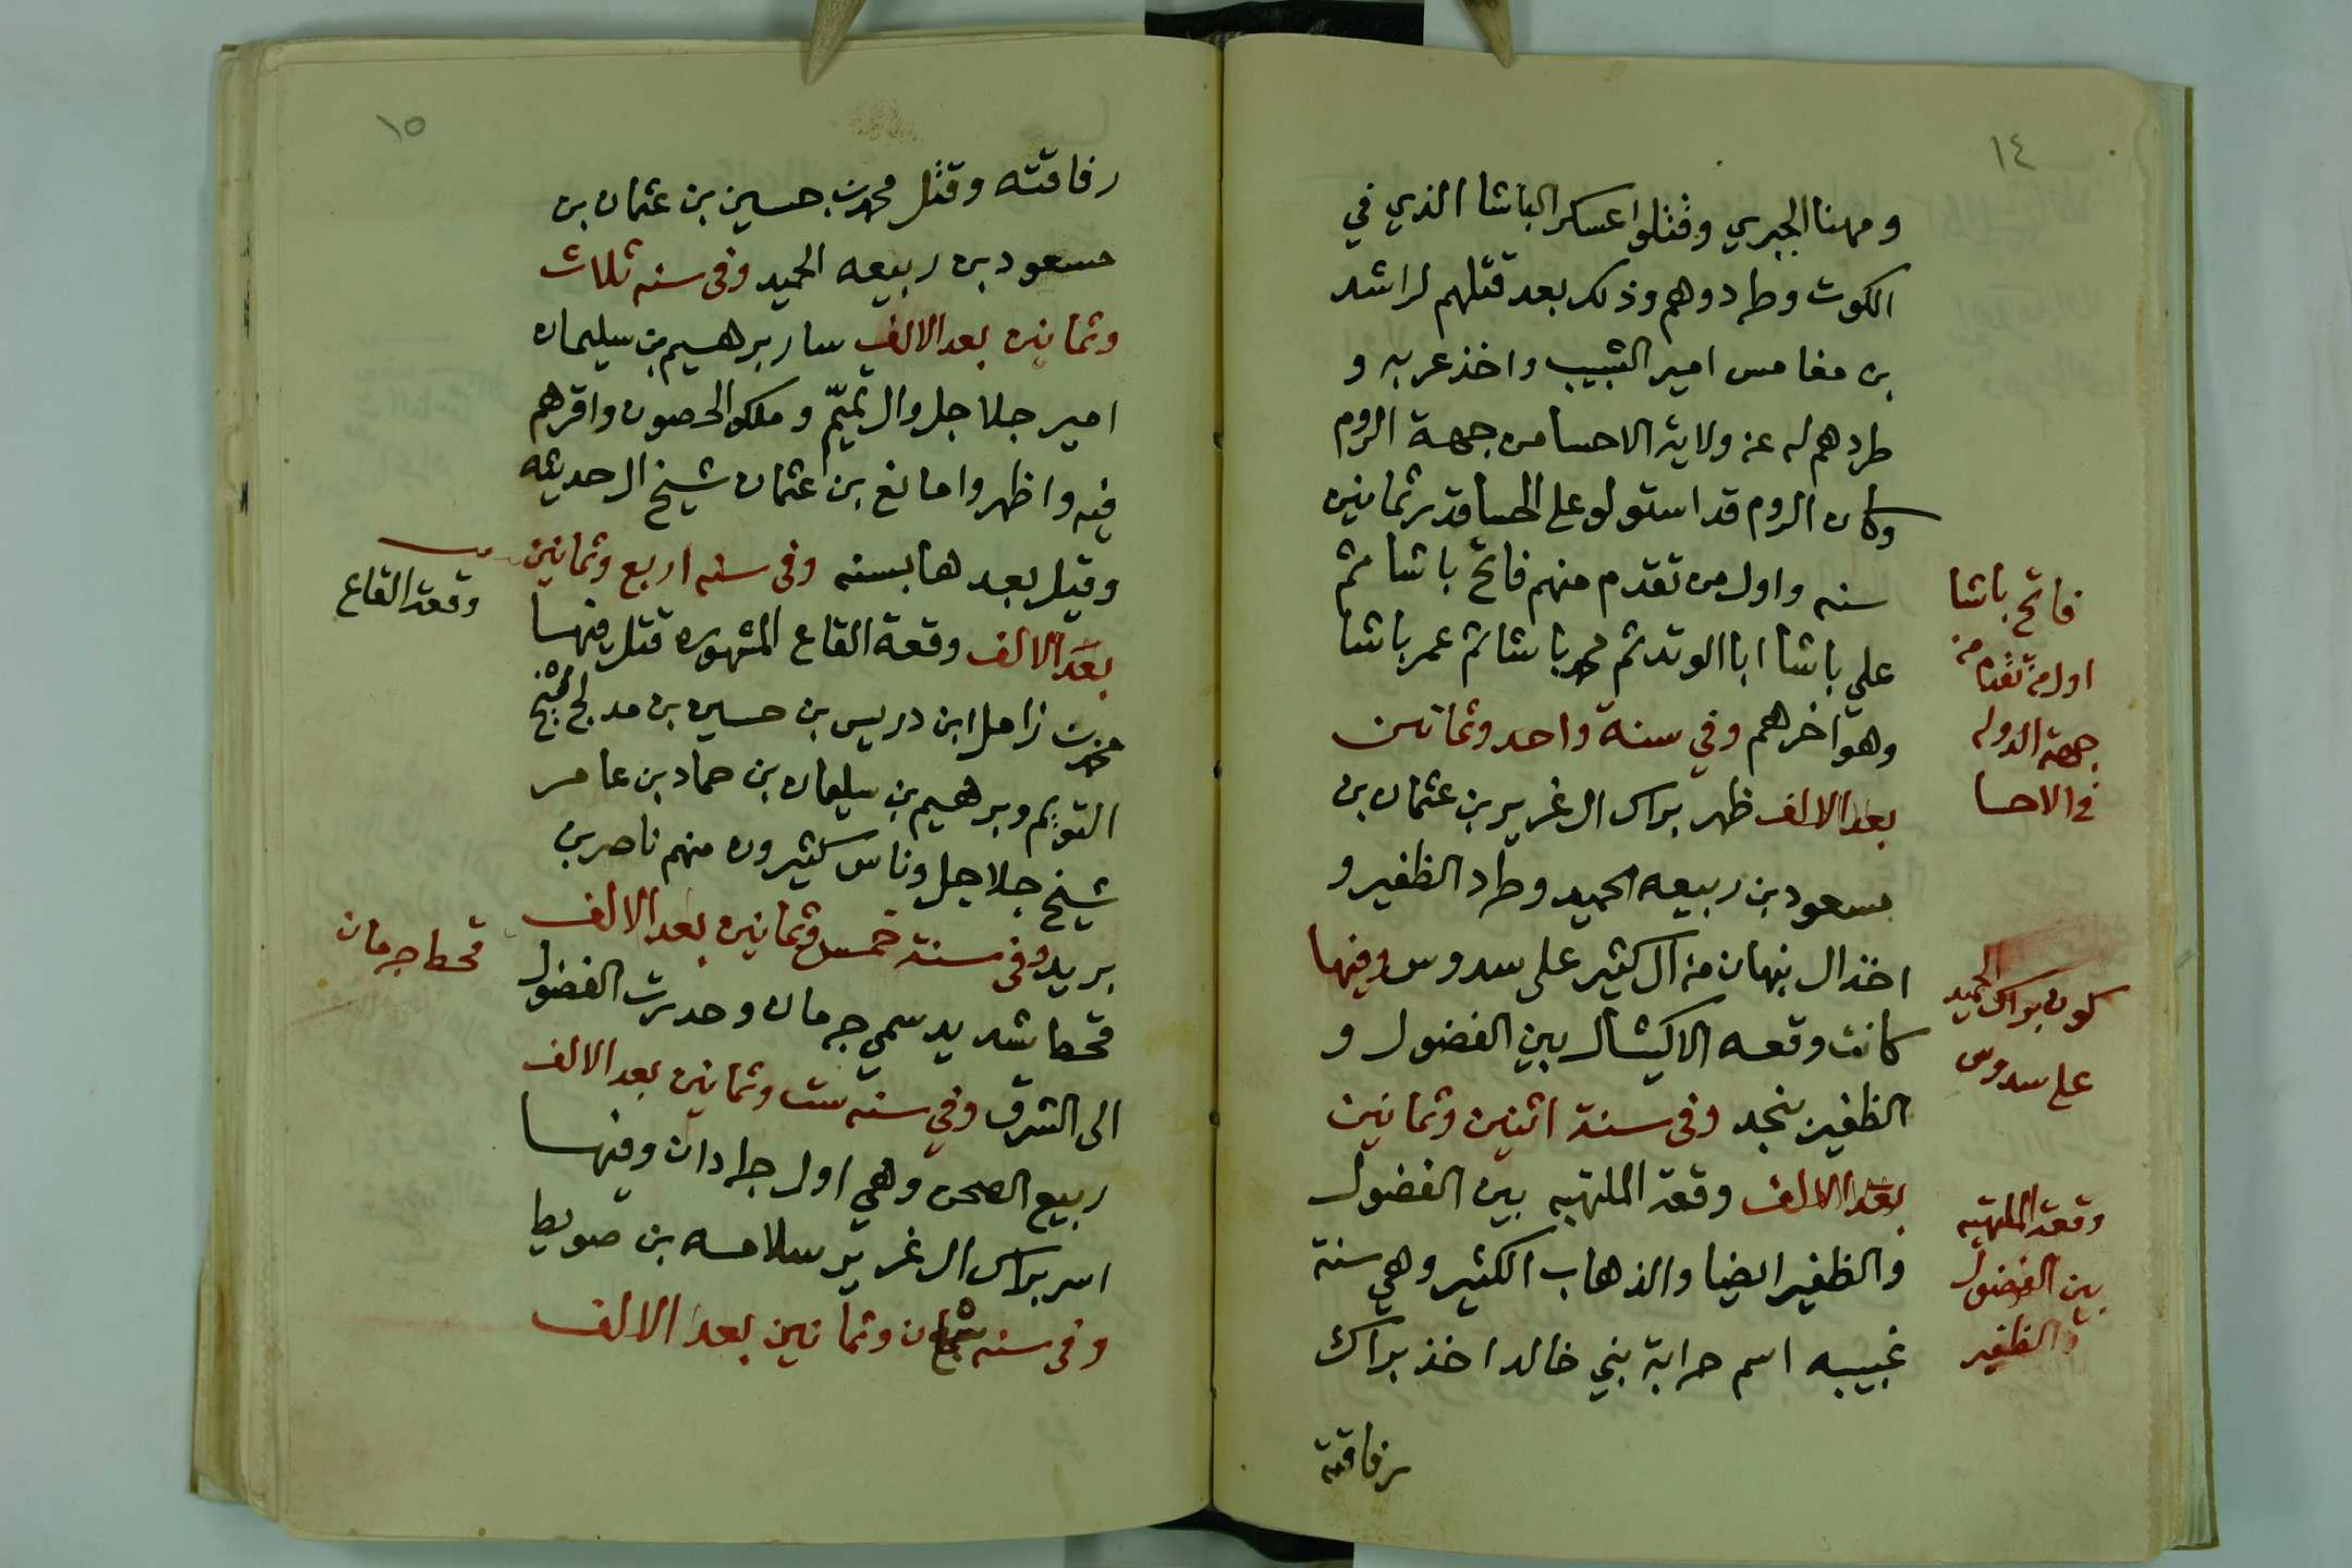 ١٤
ومهنا الجبري وقتلوا عسكر الباشا الذي في
الكوت وطردوهم وذلك بعد قتلهم لراشد
بن مغامس امير الشبيب واخذ عربه و
طردهم له عن ولاية الاحسا من جهة الروم
وكان الروم قد استولو على الحسا قدر ثمانين
سنه واول من تقدم منهم فاتح باشا ثم
علي باشا ابا الوند ثم محمد باشا ثم عمر باشا
وهو اخرهم وفي سنة واحد وثمانين
بعد الالف ظهر براك ال غرير بن عثمان بن
مسعود بن ربيعه الحميد وطرد الظفير و
اخذ ال نبهان من ال كثير على سدوس وفيها
كانت وقعه الاكيثال بين الفضول و
الظفير بنجد وفي سنة اثنين وثمانين
بعد الالف وقعة الملتهبه بين الفضول
والظفير ايضا والذهاب الكثير وهي سنة
غبيبه اسم حرابة بني خالد اخذ براك
رفاقته
فاتح باشا
اول من تقدم من
جهة الدوله
في الاحسا
كون براك الحميد
على سدوس
وقعة الملتهبه
بين الفضول
والظفير
١٥
رفاقته وقتل محمد بن حسين بن عثمان بن
مسعود بن ربيعه الحميد وفي سنه ثلاث
وثمانين بعد الالف سار برهيم بن سليمان
امير جلاجل وال تميّم وملكو الحصون واقرهم
فيه واظهروا مانع بن عثمان شيخ ال حديثه
وقيل بعدها بسنه وفي سنه اربع وثمانين
بعد الالف وقعة القاع المشهوره قتل فيها
محمد بن زامل ابن دريس بن حسين بن مدلج شيخ
التويم وبرهيم بن سليمان بن حماد بن عامر
شيخ جلاجل وناس كثيرون منهم ناصر بن
بريد وفي سنة خمس وثمانين بعد الالف
قحط شديد سمي جرمان وحدرت الفضول
الى الشرق وفي سنه ست وثمانين بعد الالف
ربيع الصحن وهي اول جرادان وفيها
اسر براك ال غرير سلامه بن صويط
وفي سنه ثمان وثمانين بعد الالف
وقعة القاع
قحط جرمان